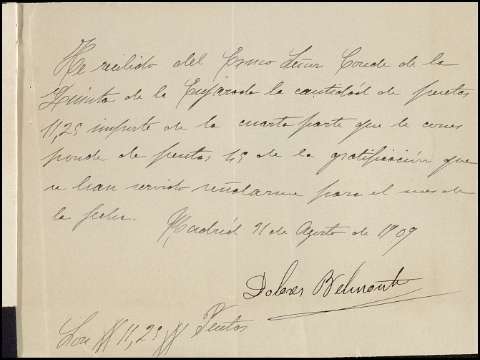 He recibido del Exmo Señor Conde de la
Quinta de la Enjarada la cantidad de pesetas
11,25 importe de la cuarta parte que le corres
ponde de pesetas 45 de la gratificación que
se han servido señalarme para el mes de
la fecha. Madrid 31 de Agosto de 1909
Dolores Belmonte
Son # 11,25 # Pesetas